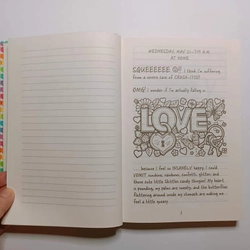 WEDNESDAY, MAY 21—7:15 A.M.
AT HOME
SQUEEEEEE!! I think I'm suffering
from a severe case of CRUSH-ITIS!
OMG! I wonder if I'm actually falling in . . .
LOVE
. . . because I feel so INSANELY happy, I could
VOMIT sunshine, rainbows, confetti, glitter, and
those cute little Skittles candy thingies! My heart
is pounding, my palms are sweaty, and the butterflies
fluttering around inside my stomach are making me
feel a little queasy.